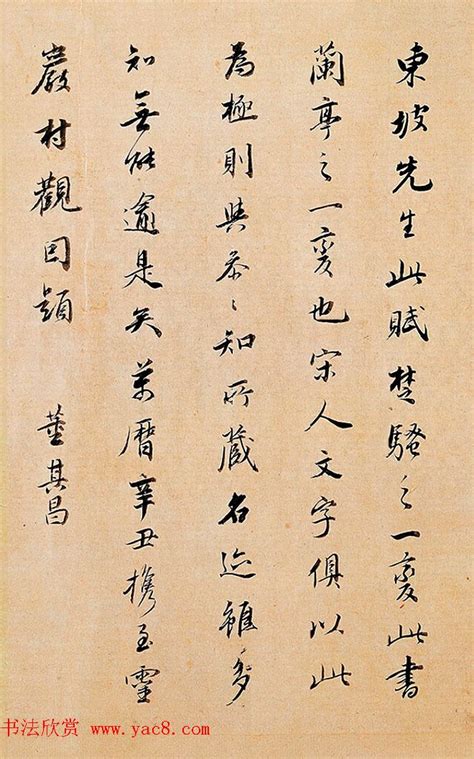 東坡先生此賦楚騷之一變此書
蘭亭之一變也宋人文字俱以此
為極則與叅〻知所藏名迹雖多
知無能逾是矣萬曆辛丑攜至靈
巖村觀因題 董其昌
书法欣赏 www.yac8.com